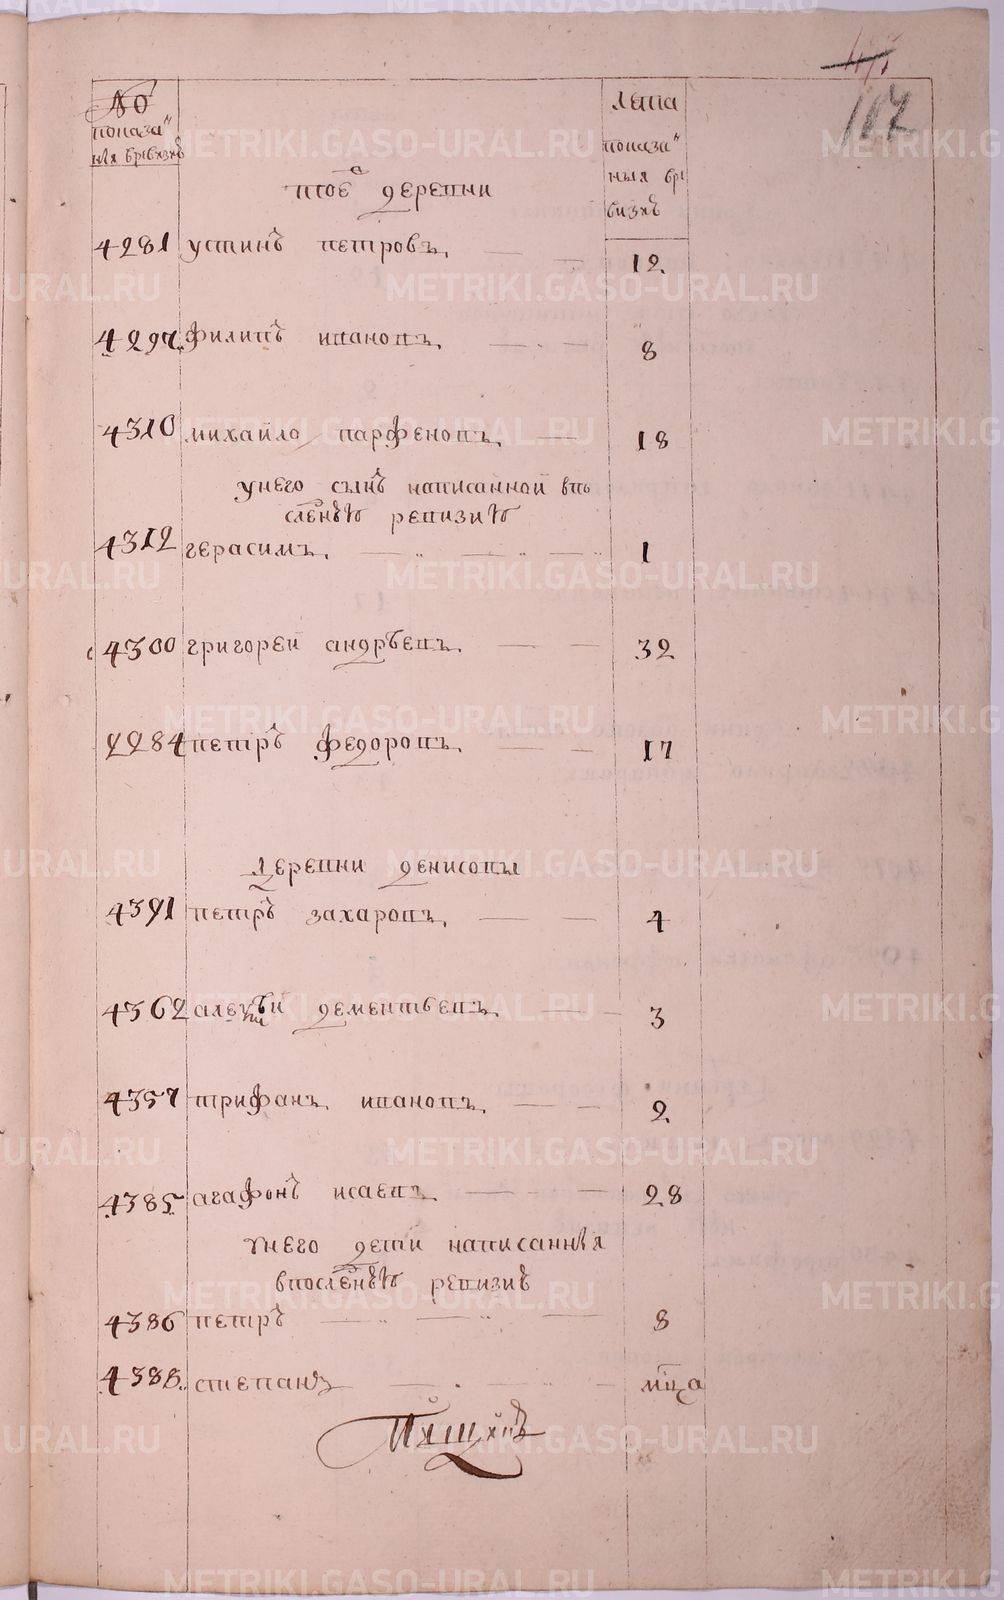 107
№ показа" лета
ния вревизиѣ показа"
ныя вре
визиѣ
тоей деревни
4281 устинъ петровъ. 12
4297. филипъ ивановъ. 8
4310 михаило парфеновъ. 18
унего сынъ написанной впо
следнѣю ревизию
4312 герасимъ. 1
4300 григореи андрѣевъ. 32
2284 петръ федоровъ. 17
деревни денисовы
4391 петръ захаровъ. 4
4362 алексѣи дементьевъ. 3
4357 трифанъ ивановъ. 2
4385 агафонъ исаевъ. 28
унего дети написанныя
впоследнѣю ревизиѣ
4386 петръ 8
4388. степанъ мца
METRIKI.GASO-URAL.RU